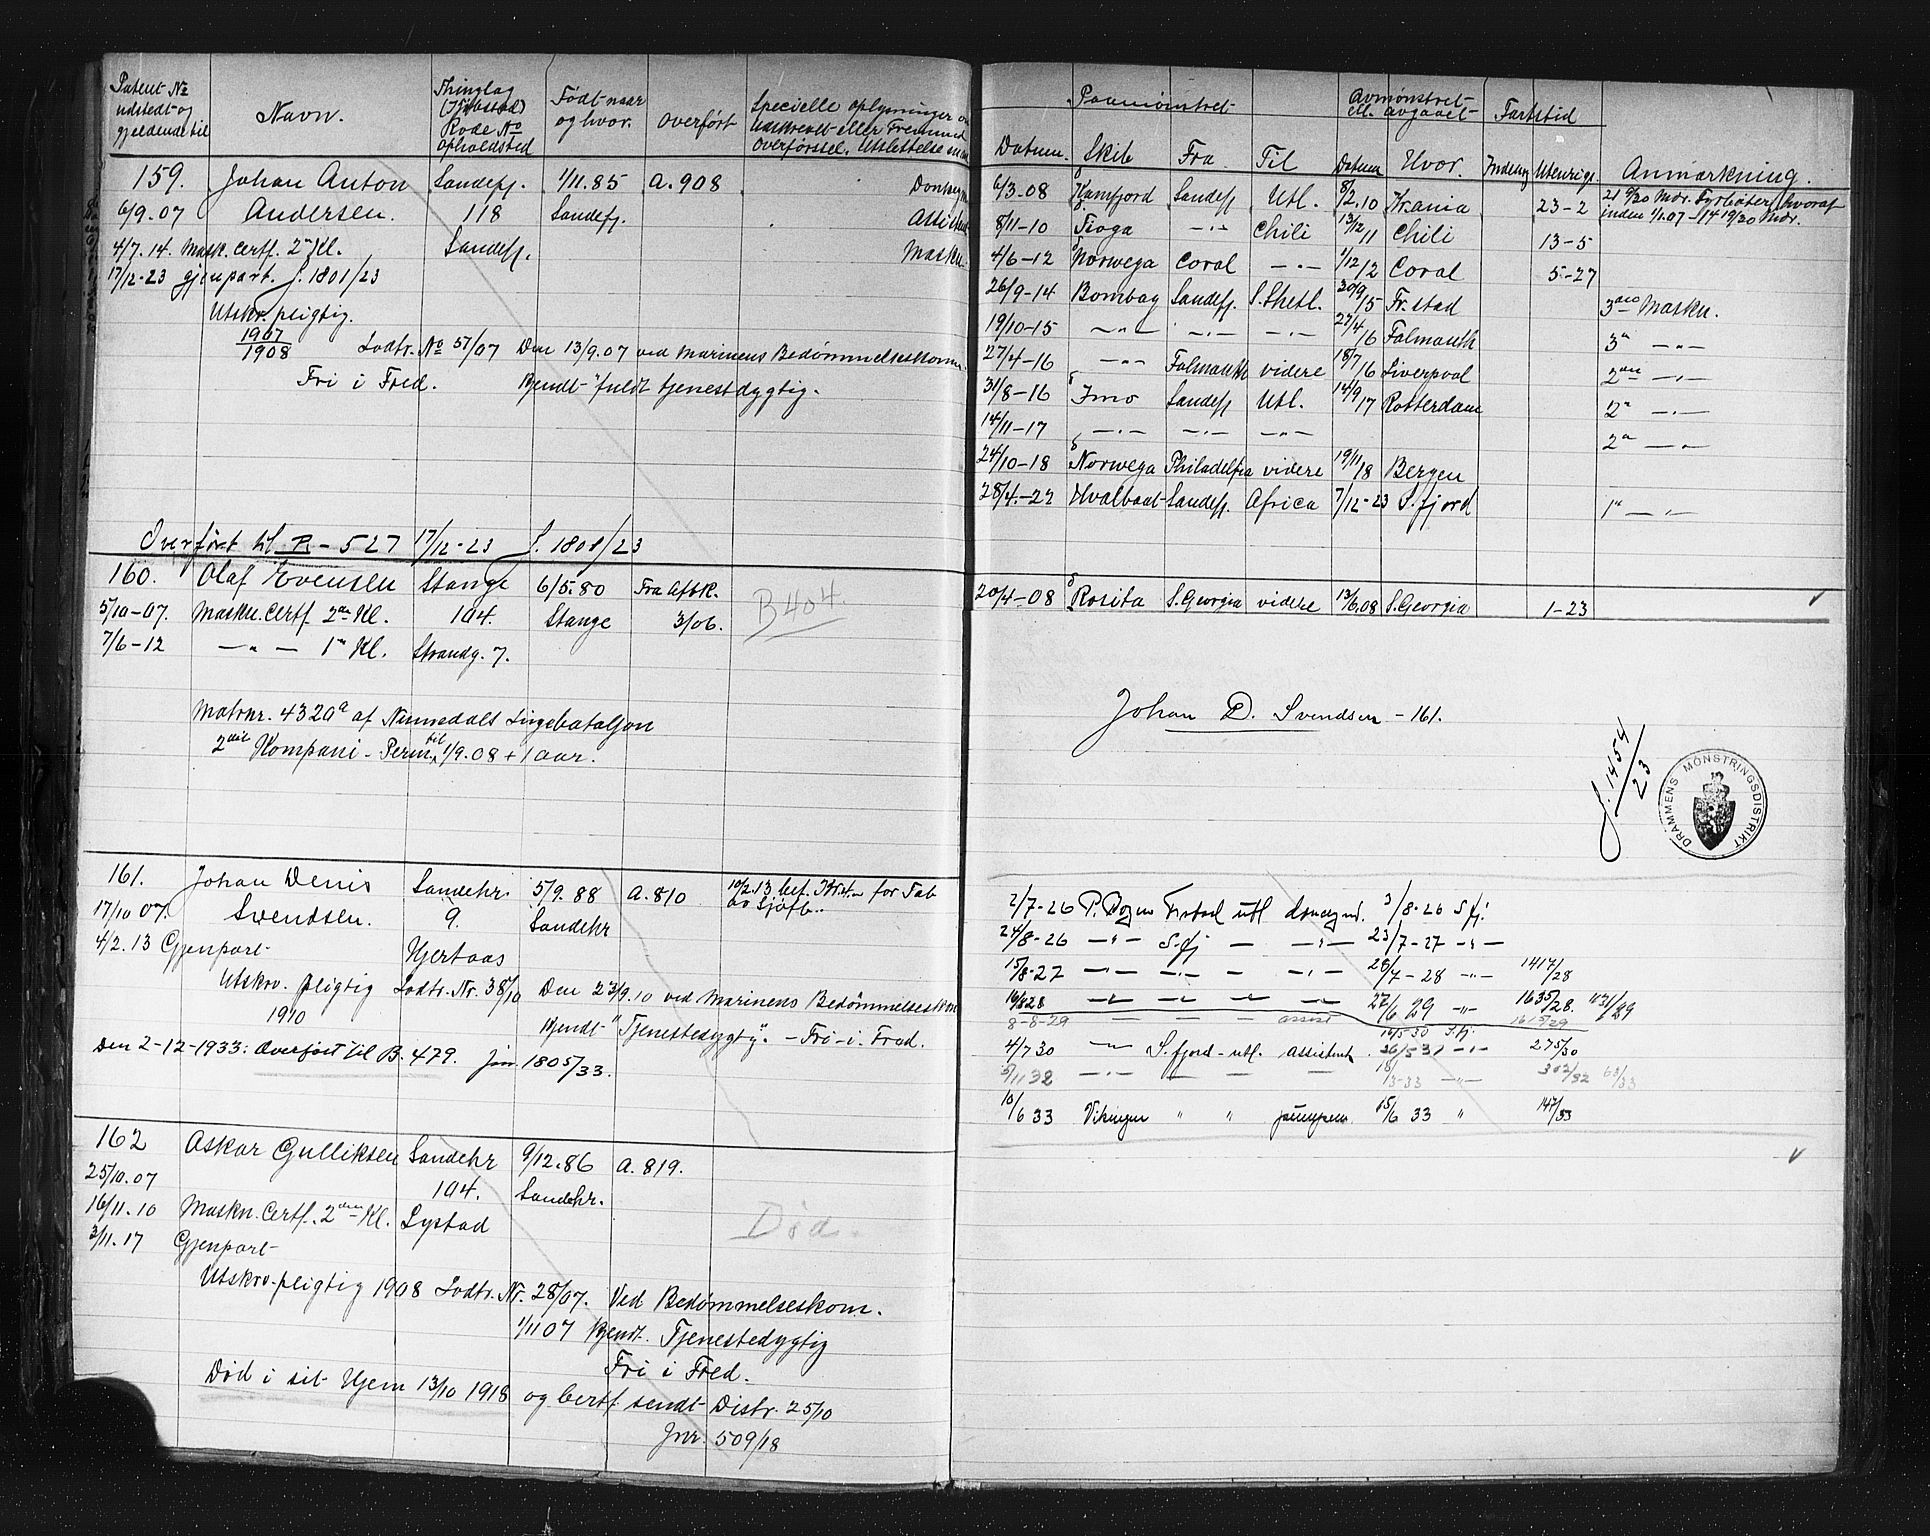 Patent No
udstedt og
gjeldende til
Navn.
Thinglag
Rode No
opholdsted
Født naar
og hvor.
overført
Specielle oplysninger
Udskrevet eller Fremmed
overførsel. Utslettelse
159. Johan Anton Sandefj. 1/11.85 A.908
6/9.07 Andersen. 118 Sandefj.
4/7.14. Maskn. Certf. 2n Kl. Sandefj. Maskn.
17/12-23 gjenpart. J. 1801/23
Utskr. pligtig.
1907
1908 Lodtr. No 57/07 Den 13/9.07 ved Marinens Bedømmelseskom.
Fri i Fred. Kjendt "fuldt tjenestdygtig.
Overført til R-527 17/12-23 J. 1801/23
160. Olaf Evensen Stange 6/5.80 Fra Afsk. B404
5/10-07. Maskn. Certf. 2en Kl. 104. Stange 3/06.
7/6-12 — " — 1n Kl. Strandg. 7.
Matrnr. 4320a af Numedals Linjebataljon
2det Kompani - Perm. til 1/9.08 + 1 aar.
161. Johan Denis Sandehr. 5/9.88 A.810 10/2.13 bef.
17/10 07. Svendsen. 9. Sandehr
4/2.13 Gjenpart Hjertaas
Utskrv. pligtig Lodtr. Nr. 38/10 Den 23/9.10 ved Marinens Bedømmelseskom
1910 Kjendt "Tjenestedygtig". - Fri - i - Fred.
Den 2-12-1933: Overført til B. 479. jnr. 1805/33.
162 Askar Gulliksen Sandehr 9/12.86 A.819.
25/10.07 104. Sandehr.
16/11.10 Maskn. Certf. 2den Kl. Lystad Død.
3/11.17 Gjenpart
Utskrv. pligtig 1908 Lodtr. Nr. 28/07. Ved Bedømmelseskom.
1/11 07 Kjendt. Tjenestedygtig
Fri i Fred.
Død i sit Hjem 13/10 1918 og Certf sendt Distr. 25/10
Jnr. 509/18
Paamønstret Avmønstret
el. avgaaet Fartstid
Datum. Skib Fra Til Datum Hvor. Indenr. Utenrigs. Anmærkning.
6/3-08 Kamfjord Sandefj Utl. 8/2.10 Kr.ania 23-2
8/11-10 Tioga — " — Chili 13/12 11 Chili 13-5
4/6-12 Norwega Coral — " — 1/12 12 Coral 5-27
26/9-14 Bombay Sandefj. S. Shetl. 30/9 15 Fr.stad 3die Maskn.
19/10-15 — " — — " — — " — 27/4 16 Falmouth 3n — " —
27/4-16 — " — Falmouth videre 18/7 16 Liverpool 2den — " —
31/8-16 Imo Sandefj Utl. 14/9 17 Rotterdam 2n — " —
14/11-17 — " — — " — — " — 2n — " —
24/10-18 Norwega Philadelfia videre 19/11 18 Bergen
28/4-22 Hvalbaat Sandefj. Africa 7/12-23 S.fjord 1n — " —
20/4-08 Rosita S.Georgia videre 13/6.08 S.Georgia 1-23
Johan D. Svendsen - 161.
J. 1454/23
DRAMMENS MØNSTRINGSDISTRIKT
2/7-26 P. Bogen Frstad utl 3/8-26 S.fj.
24/8-26 — " — S.fj — — " — 23/7-27 — " —
15/8-27 — " — — " — — — " — 28/7-28 — " — 1417/28
16/8 28 — " — — " — — " — — " — 27/6 29 — " — 1635/28.
8-8-29 — — — assist 14/5-30 S.fj 1615/29
4/7 30 — " — S.fjord - utl. assistent 26/5 31 — " — 275/30
5/11 32 — " — — — — 18/3-33 — " — 302/32 63/33
10/6 33 Vikingen " " 15/6 33 " 147/33